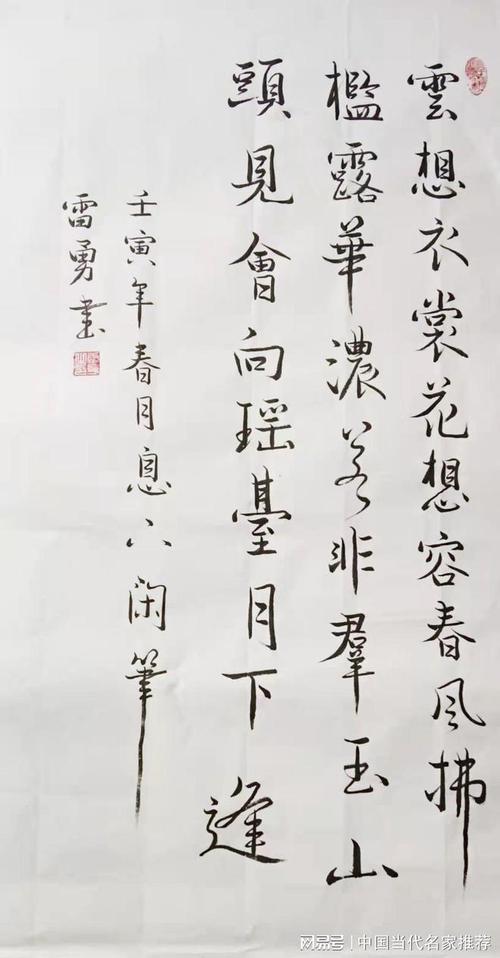 雲想衣裳花想容春風拂
檻露華濃若非羣玉山
頭見會向瑶臺月下逢
壬寅年春月息心闲筆
雷勇書
网易号 | 中国当代名家推荐